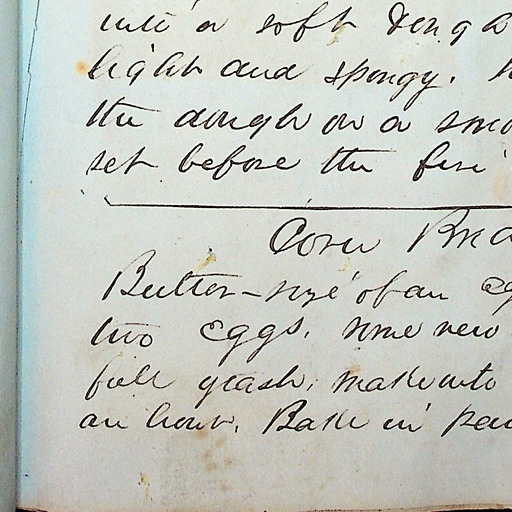 into a soft dough
light and spongy.
the dough on a
set before the fire
Corn
Butter - size of an
two eggs. some new
full yeast. make into
an hour. Bake in